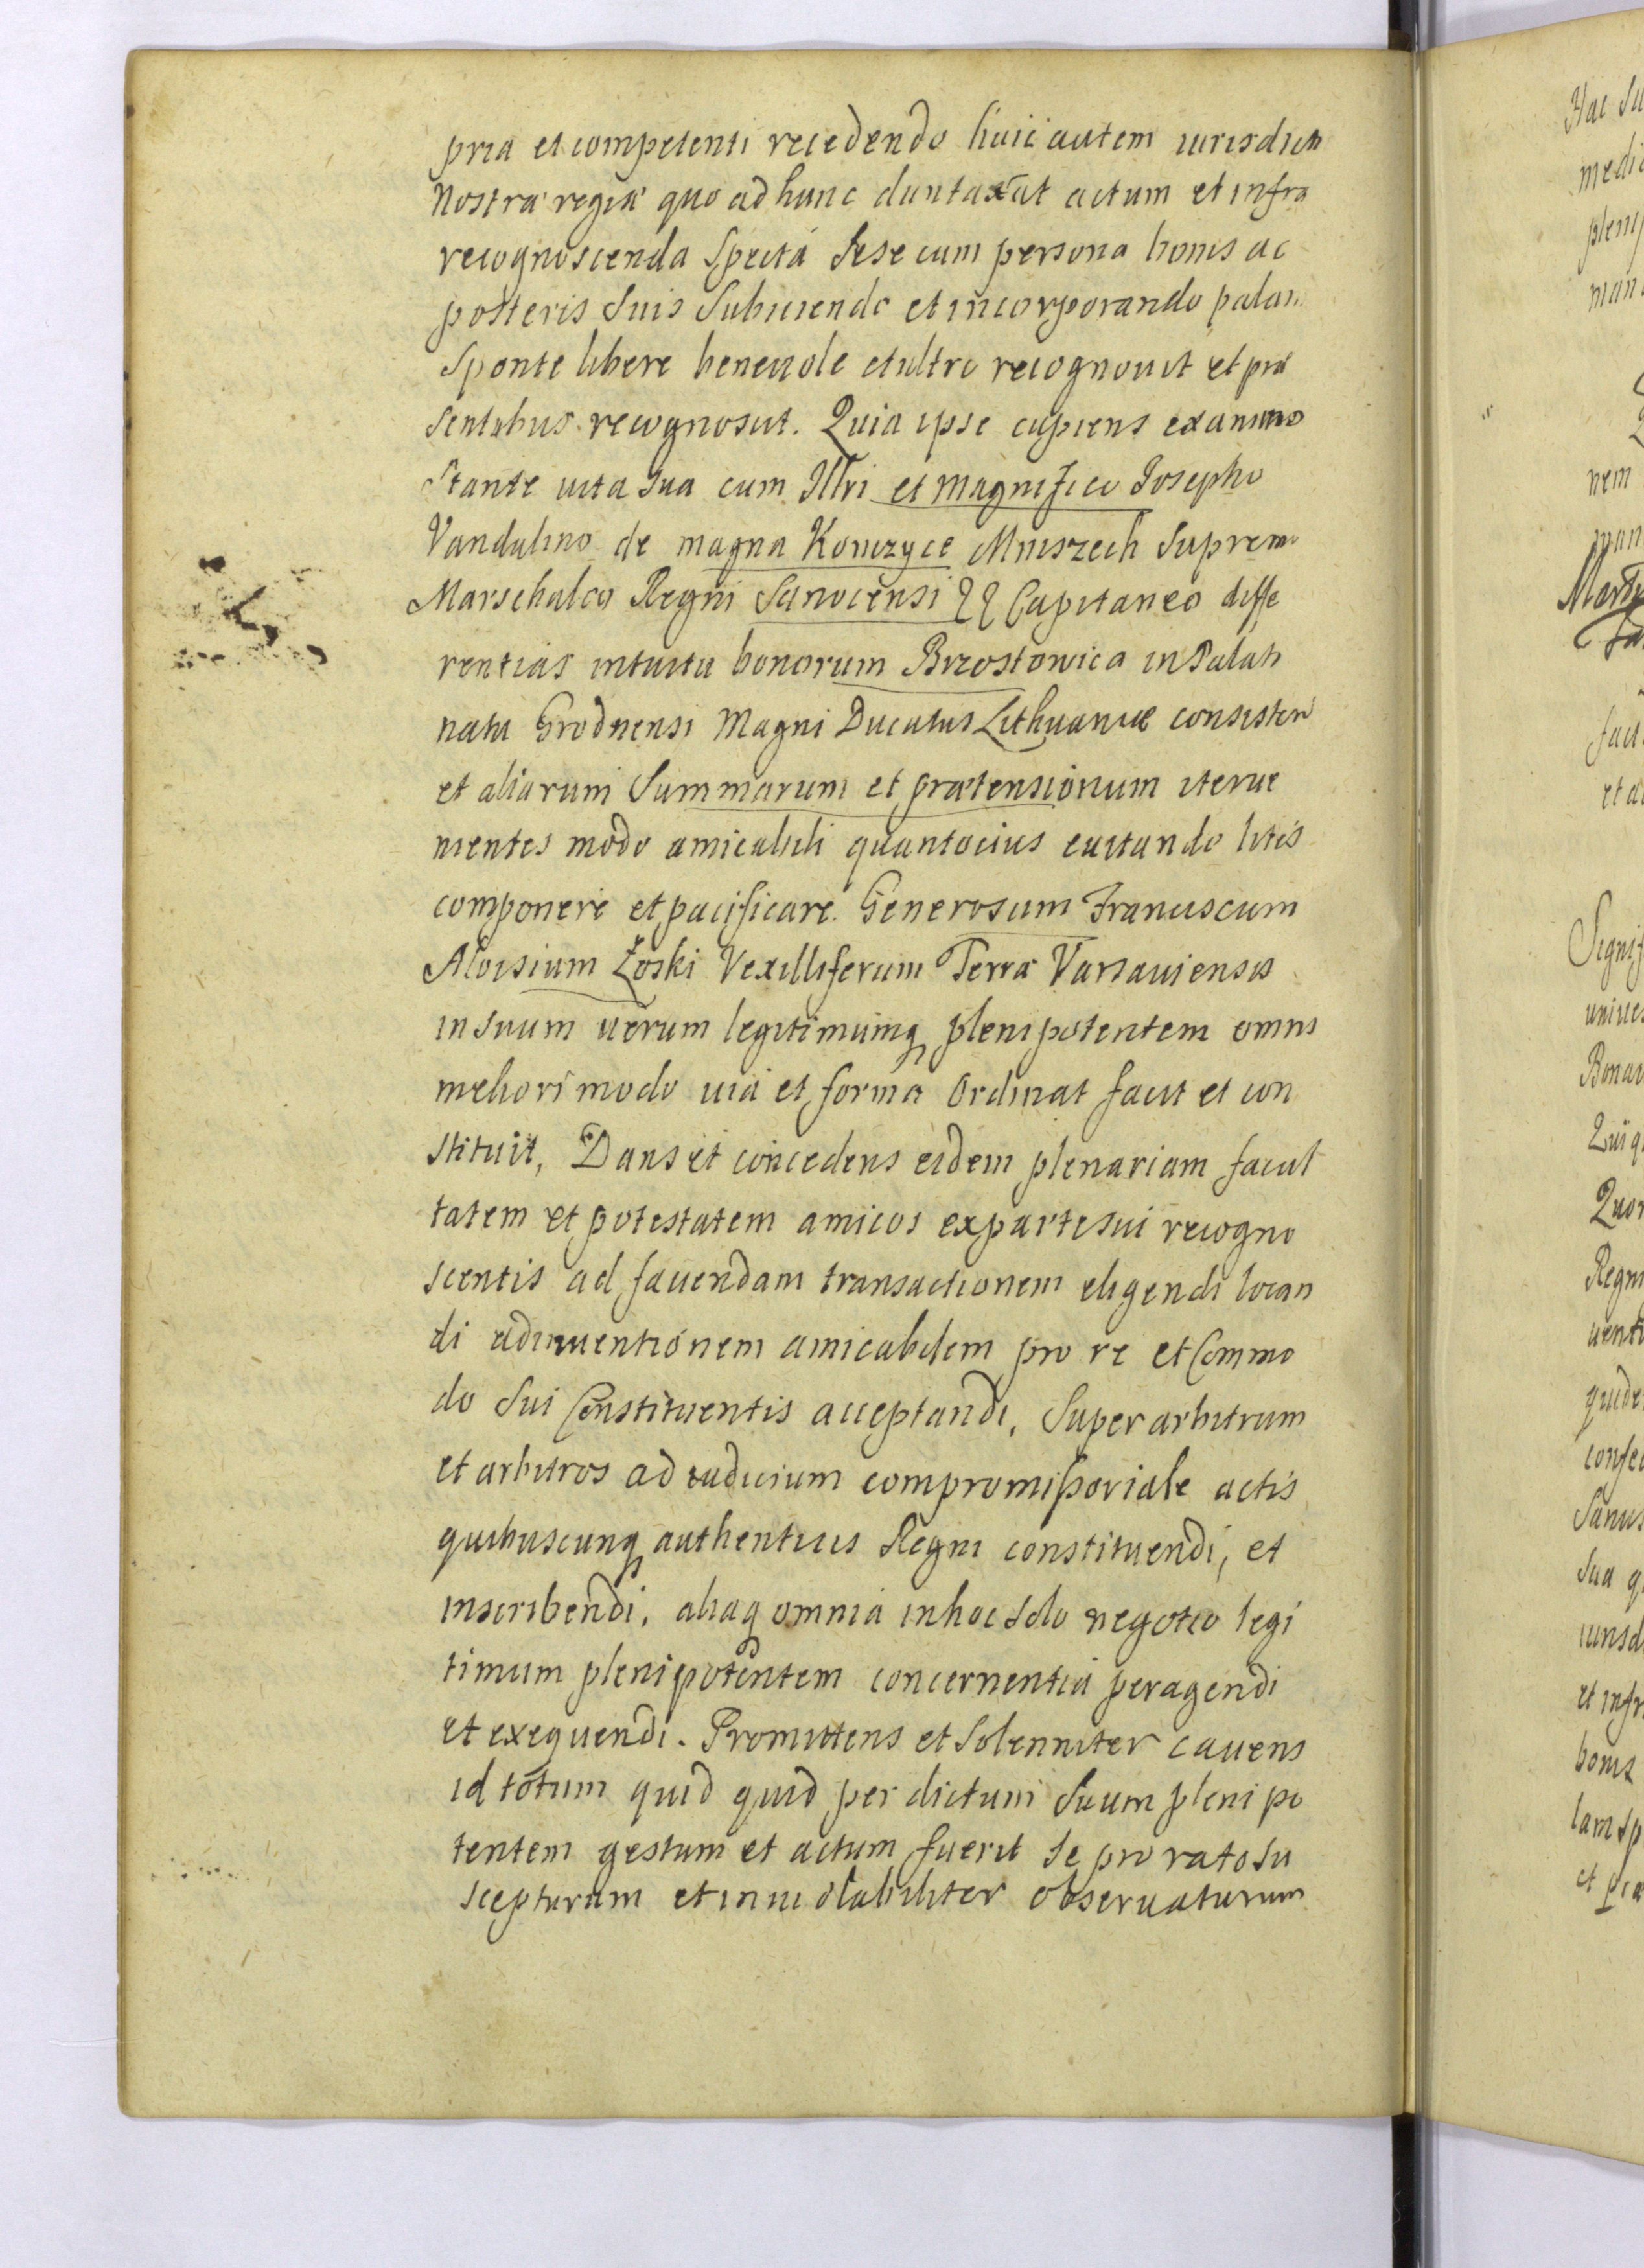 pria et competenti recedendo huic autem iurisdicti
Nostræ regiæ quo ad hunc duntaxat actum et infra
recognoscenda Spectá Sese cum persona bonis ac
posteris Suis Subiiciendo et incorporando palam
Sponte libere beneuole et ultro recognouit et præ
sentibus recognoscit. Quia ipse cupiens ex animo
Stante uita Sua cum Illri et Magnifico Josepho
Vandalino de magna Konczyce Mniszech Supremo
Marschalco Regni Sanocensi &c Capitaneo diffe
rentias intuitu bonorum Brzostowica in Palati
natu Grodnensi Magni Ducatus Lithuaniæ consisten
et aliarum Summarum et prætensionum iterue
nientes modo amicabili quantocius euitando litis
componere et pacificare. Generosum Franciscum
Aloisium Łoski Vexilliferum Terræ Varsauiensis
in Suum uerum legitimumq plenipotentem omni
meliori modo uia et forma Ordinat facit et con
stituit, Dans et concedens eidem plenariam facul
tatem et potestatem amicos ex parte sui recogno
scentis ad fauendam transactionem eligendi locan
di adinuentionem amicabilem pro re et Commo
do Sui Constituentis acceptandi, Superarbitrum
et arbitros ad iudicium compromissoriale actis
quibuscunq authenticis Regni constituendi, et
inscribendi, aliaq omnia in hoc Solo negotio legi
timum plenipotentem concernentia peragendi
et exequendi. Promittens et Solenniter cauens
id totum quid quid per dictum Suum plenipo
tentem gestum et actum fuerit Se pro rato Su
scepturum et inuiolabiliter obseruaturum